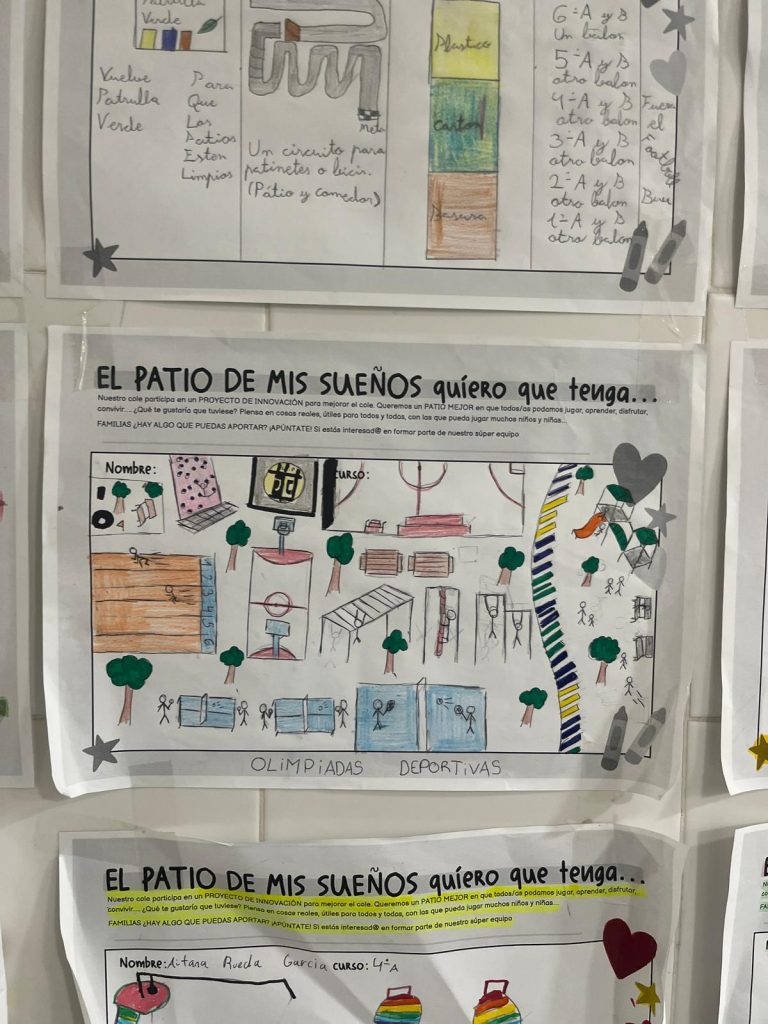 Patrulla
Verde
Vuelve
Patrulla
Verde
Para
Que
Los
Patios
Esten
Limpios
Meta
Un circuito para
patinetes o bici.
(Pátio y comedor)
Plastico
Carton
Basura
6º A y B
Un balon
5º A y B
otro balon
4º A y B
otro balon
3º A y B
otro balon
2º A y B
otro balon
1º A y B
otro balon
Fuera
el
EL PATIO DE MIS SUEÑOS quiero que tenga...
Nuestro cole participa en un PROYECTO DE INNOVACIÓN para mejorar el cole. Queremos un PATIO MEJOR en que todos/as podamos jugar, aprender, disfrutar,
convivir.... ¿Qué te gustaría que tuviese? Piensa en cosas reales, útiles para todos y todas, con las que pueda jugar muchos niños y niñas...
FAMILIAS ¿HAY ALGO QUE PUEDAS APORTAR? ¡APÚNTATE! Si estás interesad@ en formar parte de nuestro súper equipo
Nombre:
CURSO:
1 2 3 4 5 6
OLIMPIADAS DEPORTIVAS
EL PATIO DE MIS SUEÑOS quiero que tenga...
Nuestro cole participa en un PROYECTO DE INNOVACIÓN para mejorar el cole. Queremos un PATIO MEJOR en que todos/as podamos jugar, aprender, disfrutar,
convivir.... ¿Qué te gustaría que tuviese? Piensa en cosas reales, útiles para todos y todas, con las que pueda jugar muchos niños y niñas...
FAMILIAS ¿HAY ALGO QUE PUEDAS APORTAR? ¡APÚNTATE! Si estás interesad@ en formar parte de nuestro súper equipo
Nombre: Aitana Rueda Garcia CURSO: 4º A